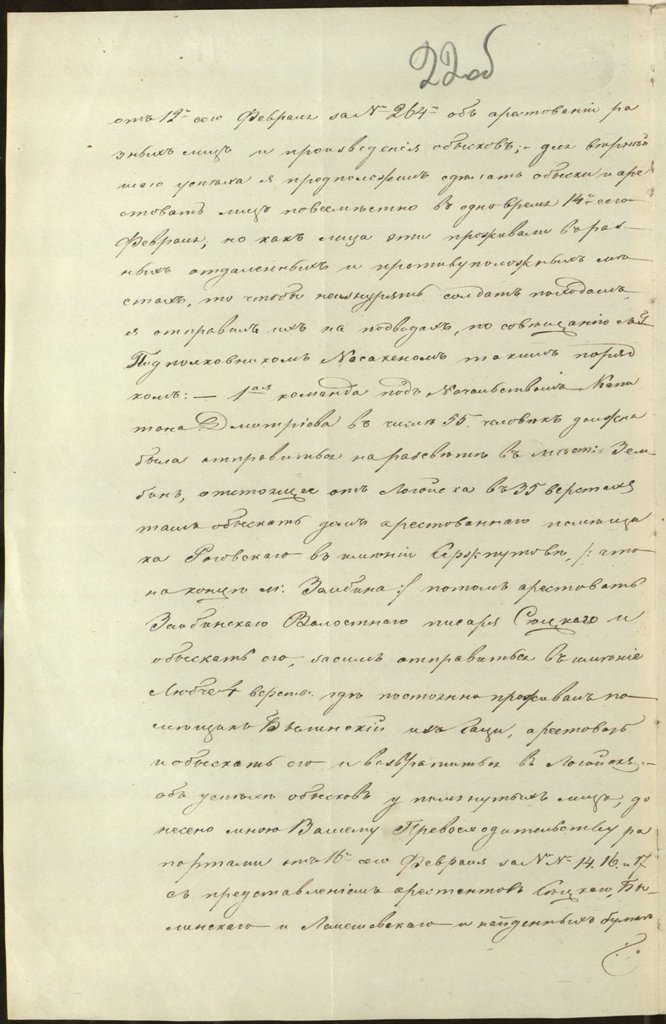 22 об
отъ 12го сего Февраля за № 264м объ арестованіи ра
зныхъ лицъ и произведенія обысковъ; для вѣрнѣй
шаго успѣха я предположилъ сдѣлать обыски и аре
стовать лицъ повсемѣстно въ одно время 14го сего
Февраля; но какъ лица эти проживали въ раз
ныхъ отдаленныхъ и противуположныхъ мѣ
стахъ, то чтобы неизнурять солдатъ походомъ,
я отправилъ ихъ на подводахъ, по совѣщанію съ
Подполковникомъ Насакеномъ такимъ поряд
комъ: — 1ая команда подъ Начальствомъ Капи
тана Дмитріева въ числѣ 55. человѣкъ должна
была отправиться на разсвѣтѣ въ мѣст: Зем-
бинъ, отстоящее отъ Логойска въ 35 верстахъ
тамъ обыскать домъ арестованнаго помѣщи
ка Роговскаго въ имѣніи /: это
на концѣ м: Зембина :/ потомъ арестовать
Зембинскаго Волостнаго писаря Сюцкаго и
обыскать его, засимъ отправиться въ имѣніе
Любче 4 верст: гдѣ постоянно проживалъ по
мѣщикъ Былинскій арестовать
и обыскать его и возвратиться въ Логойскъ.—
объ успѣхѣ обысковъ у помянутыхъ лицъ, до
несено мною Вашему Превосходительству ра
портами отъ 16го сего Февраля за №№ 14. 16. и 17.
съ представленіемъ арестантовъ Сюцкаго, Бы-
линскаго и и найденныхъ бумагъ